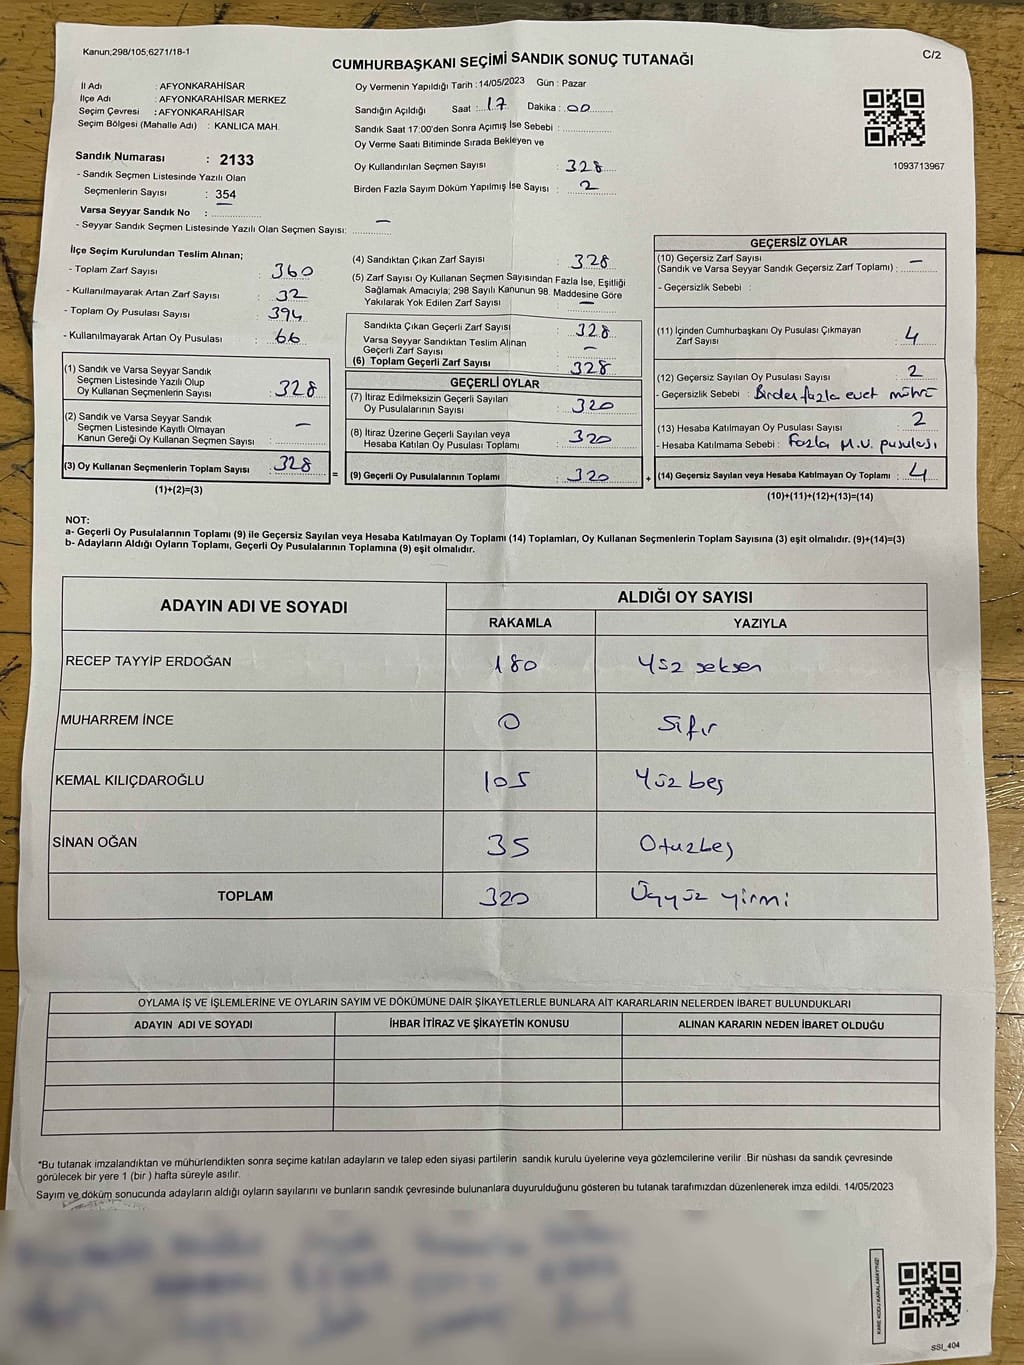 Kanun;298/105,6271/18-1
C/2
CUMHURBAŞKANI SEÇİMİ SANDIK SONUÇ TUTANAĞI
İl Adı : AFYONKARAHİSAR
İlçe Adı : AFYONKARAHİSAR MERKEZ
Seçim Çevresi : AFYONKARAHİSAR
Seçim Bölgesi (Mahalle Adı) : KANLICA MAH.
Sandık Numarası : 2133
- Sandık Seçmen Listesinde Yazılı Olan
Seçmenlerin Sayısı : 354
Varsa Seyyar Sandık No :
- Seyyar Sandık Seçmen Listesinde Yazılı Olan Seçmen Sayısı: —
Oy Vermenin Yapıldığı Tarih : 14/05/2023 Gün : Pazar
Sandığın Açıldığı Saat : 17 Dakika : 00
Sandık Saat 17:00'den Sonra Açımış İse Sebebi :
Oy Verme Saati Bitiminde Sırada Bekleyen ve
Oy Kullandırılan Seçmen Sayısı : 328
Birden Fazla Sayım Döküm Yapılmış İse Sayısı : 2
1093713967
İlçe Seçim Kurulundan Teslim Alınan;
- Toplam Zarf Sayısı : 360
- Kullanılmayarak Artan Zarf Sayısı : 32
- Toplam Oy Pusulası Sayısı : 394
- Kullanılmayarak Artan Oy Pusulası : 66
(1) Sandık ve Varsa Seyyar Sandık
Seçmen Listesinde Yazılı Olup
Oy Kullanan Seçmenlerin Sayısı : 328
(2) Sandık ve Varsa Seyyar Sandık
Seçmen Listesinde Kayıtlı Olmayan
Kanun Gereği Oy Kullanan Seçmen Sayısı : —
(3) Oy Kullanan Seçmenlerin Toplam Sayısı : 328 =
(1)+(2)=(3)
(4) Sandıktan Çıkan Zarf Sayısı : 328
(5) Zarf Sayısı Oy Kullanan Seçmen Sayısından Fazla İse, Eşitliği
Sağlamak Amacıyla; 298 Sayılı Kanunun 98. Maddesine Göre
Yakılarak Yok Edilen Zarf Sayısı : —
Sandıkta Çıkan Geçerli Zarf Sayısı : 328
Varsa Seyyar Sandıktan Teslim Alınan
Geçerli Zarf Sayısı : —
(6) Toplam Geçerli Zarf Sayısı : 328
GEÇERLİ OYLAR
(7) İtiraz Edilmeksizin Geçerli Sayılan
Oy Pusulalarının Sayısı : 320
(8) İtiraz Üzerine Geçerli Sayılan veya
Hesaba Katılan Oy Pusulası Toplamı : 320
(9) Geçerli Oy Pusulalarının Toplamı : 320 +
GEÇERSİZ OYLAR
(10) Geçersiz Zarf Sayısı
(Sandık ve Varsa Seyyar Sandık Geçersiz Zarf Toplamı) : —
- Geçersizlik Sebebi :
(11) İçinden Cumhurbaşkanı Oy Pusulası Çıkmayan
Zarf Sayısı : 4
(12) Geçersiz Sayılan Oy Pusulası Sayısı : 2
- Geçersizlik Sebebi : Birden fazla evet mührü
(13) Hesaba Katılmayan Oy Pusulası Sayısı : 2
- Hesaba Katılmama Sebebi : Fazla M.V. pusulası
(14) Geçersiz Sayılan veya Hesaba Katılmayan Oy Toplamı : 4
(10)+(11)+(12)+(13)=(14)
NOT:
a- Geçerli Oy Pusulalarının Toplamı (9) ile Geçersiz Sayılan veya Hesaba Katılmayan Oy Toplamı (14) Toplamları, Oy Kullanan Seçmenlerin Toplam Sayısına (3) eşit olmalıdır. (9)+(14)=(3)
b- Adayların Aldığı Oyların Toplamı, Geçerli Oy Pusulalarının Toplamına (9) eşit olmalıdır.
ADAYIN ADI VE SOYADI
ALDIĞI OY SAYISI
RAKAMLA YAZIYLA
RECEP TAYYİP ERDOĞAN 180 Yüz seksen
MUHARREM İNCE 0 Sıfır
KEMAL KILIÇDAROĞLU 105 Yüz beş
SİNAN OĞAN 35 Otuzbeş
TOPLAM 320 Üçyüz yirmi
OYLAMA İŞ VE İŞLEMLERİNE VE OYLARIN SAYIM VE DÖKÜMÜNE DAİR ŞİKAYETLERLE BUNLARA AİT KARARLARIN NELERDEN İBARET BULUNDUKLARI
ADAYIN ADI VE SOYADI İHBAR İTİRAZ VE ŞİKAYETİN KONUSU ALINAN KARARIN NEDEN İBARET OLDUĞU
*Bu tutanak imzalandıktan ve mühürlendikten sonra seçime katılan adayların ve talep eden siyasi partilerin sandık kurulu üyelerine veya gözlemcilerine verilir .Bir nüshası da sandık çevresinde
görülecek bir yere 1 (bir ) hafta süreyle asılır.
Sayım ve döküm sonucunda adayların aldığı oyların sayılarını ve bunların sandık çevresinde bulunanlara duyurulduğunu gösteren bu tutanak tarafımızdan düzenlenerek imza edildi. 14/05/2023
KARE KODU KARALAMAYINIZ!
SSI_404